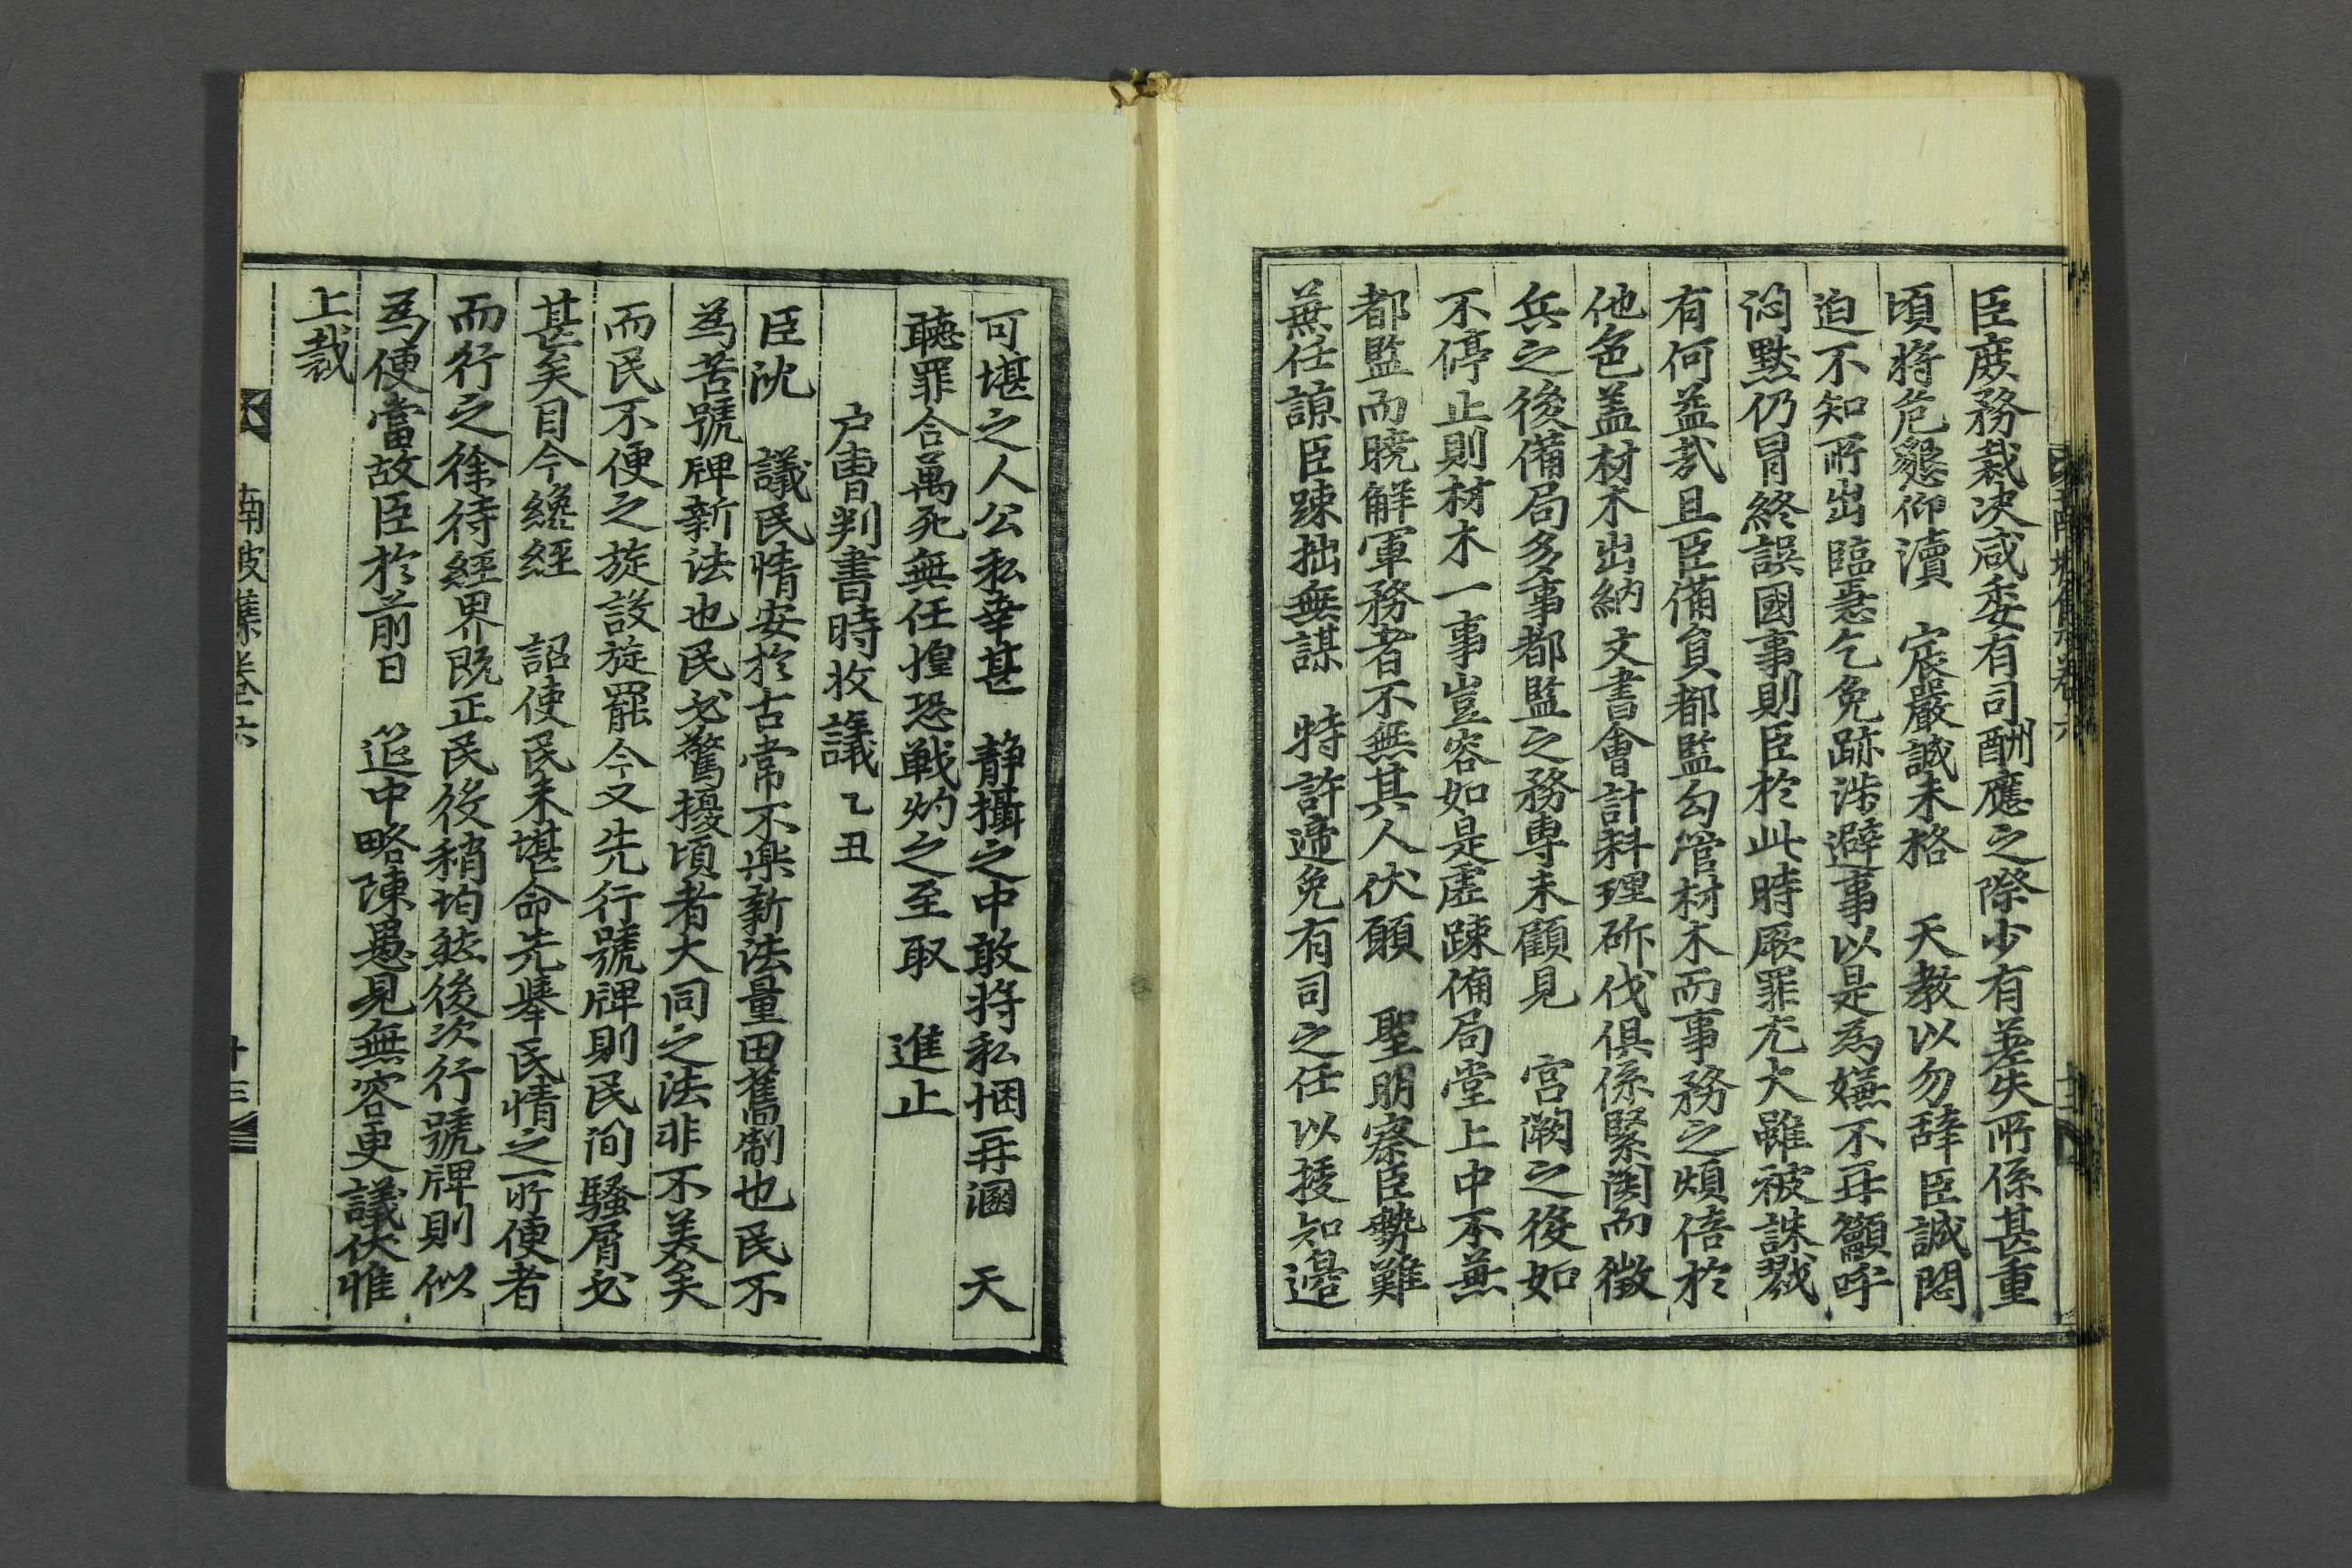 臣庶務裁決咸委有司酬應之際少有差失所係甚重
頃將危懇仰瀆　宸嚴誠未格　天教以勿辞臣誠悶
迫不知所出臨惡乞免跡涉避事以是為嫌不再籲呼
泯默仍冒終誤國事則臣於此時厥罪尤大雖被誅戮
有何益哉且臣備負都監勾管材木而事務之煩倍於
他色盖材木出納文書會計料理斫伐俱係緊関而徵
兵之後備局多事都監之務專未顧見　宮闕之役如
不停止則材木一事豈容如是虛踈備局堂上中不無
都監而曉解軍務者不無其人伏願　聖明察臣勢難
兼任諒臣踈拙無謀　特許遞免有司之任以授知邊
可堪之人公私幸甚　静攝之中敢将私悃再溷　天
聽罪合萬死無任惶恐戰灼之至取　進止
户曹判書時收議乙丑
臣沈　議民情安於古常不樂新法量田舊制也民不
為苦號牌新法也民必驚擾頃者大同之法非不美矣
而民不便之旋設旋罷今又先行號牌則民间騷屑必
甚矣目今纔經　詔使民未堪命先擧民情之所便者
而行之徐待經界既正民役稍均然後次行號牌則似
為便當故臣於前日　筵中略陳愚見無容更議伏惟
上裁
南坡集卷六
十三